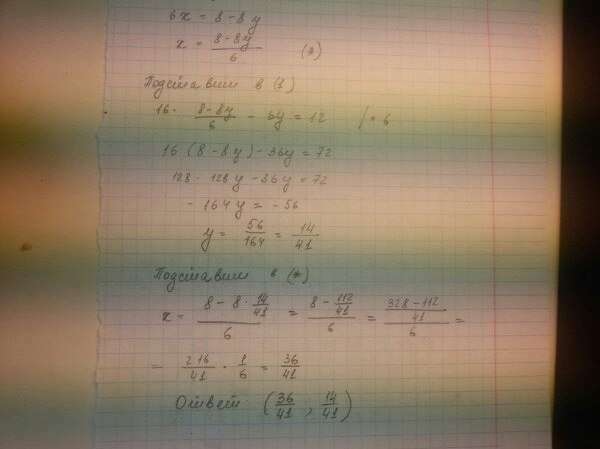 6x = 8 - 8y
x = \frac{8-8y}{6} (*)
Подставим в (1)
16 · \frac{8-8y}{6} - 6y = 12 / · 6
16 (8 - 8y) - 36y = 72
128 - 128y - 36y = 72
- 164y = - 56
y = \frac{56}{164} = \frac{14}{41}
Подставим в (*)
x = \frac{8 - 8 · \frac{14}{41}}{6} = \frac{8 - \frac{112}{41}}{6} = \frac{\frac{328-112}{41}}{6} =
= \frac{216}{41} · \frac{1}{6} = \frac{36}{41}
Ответ (\frac{36}{41}, \frac{14}{41})